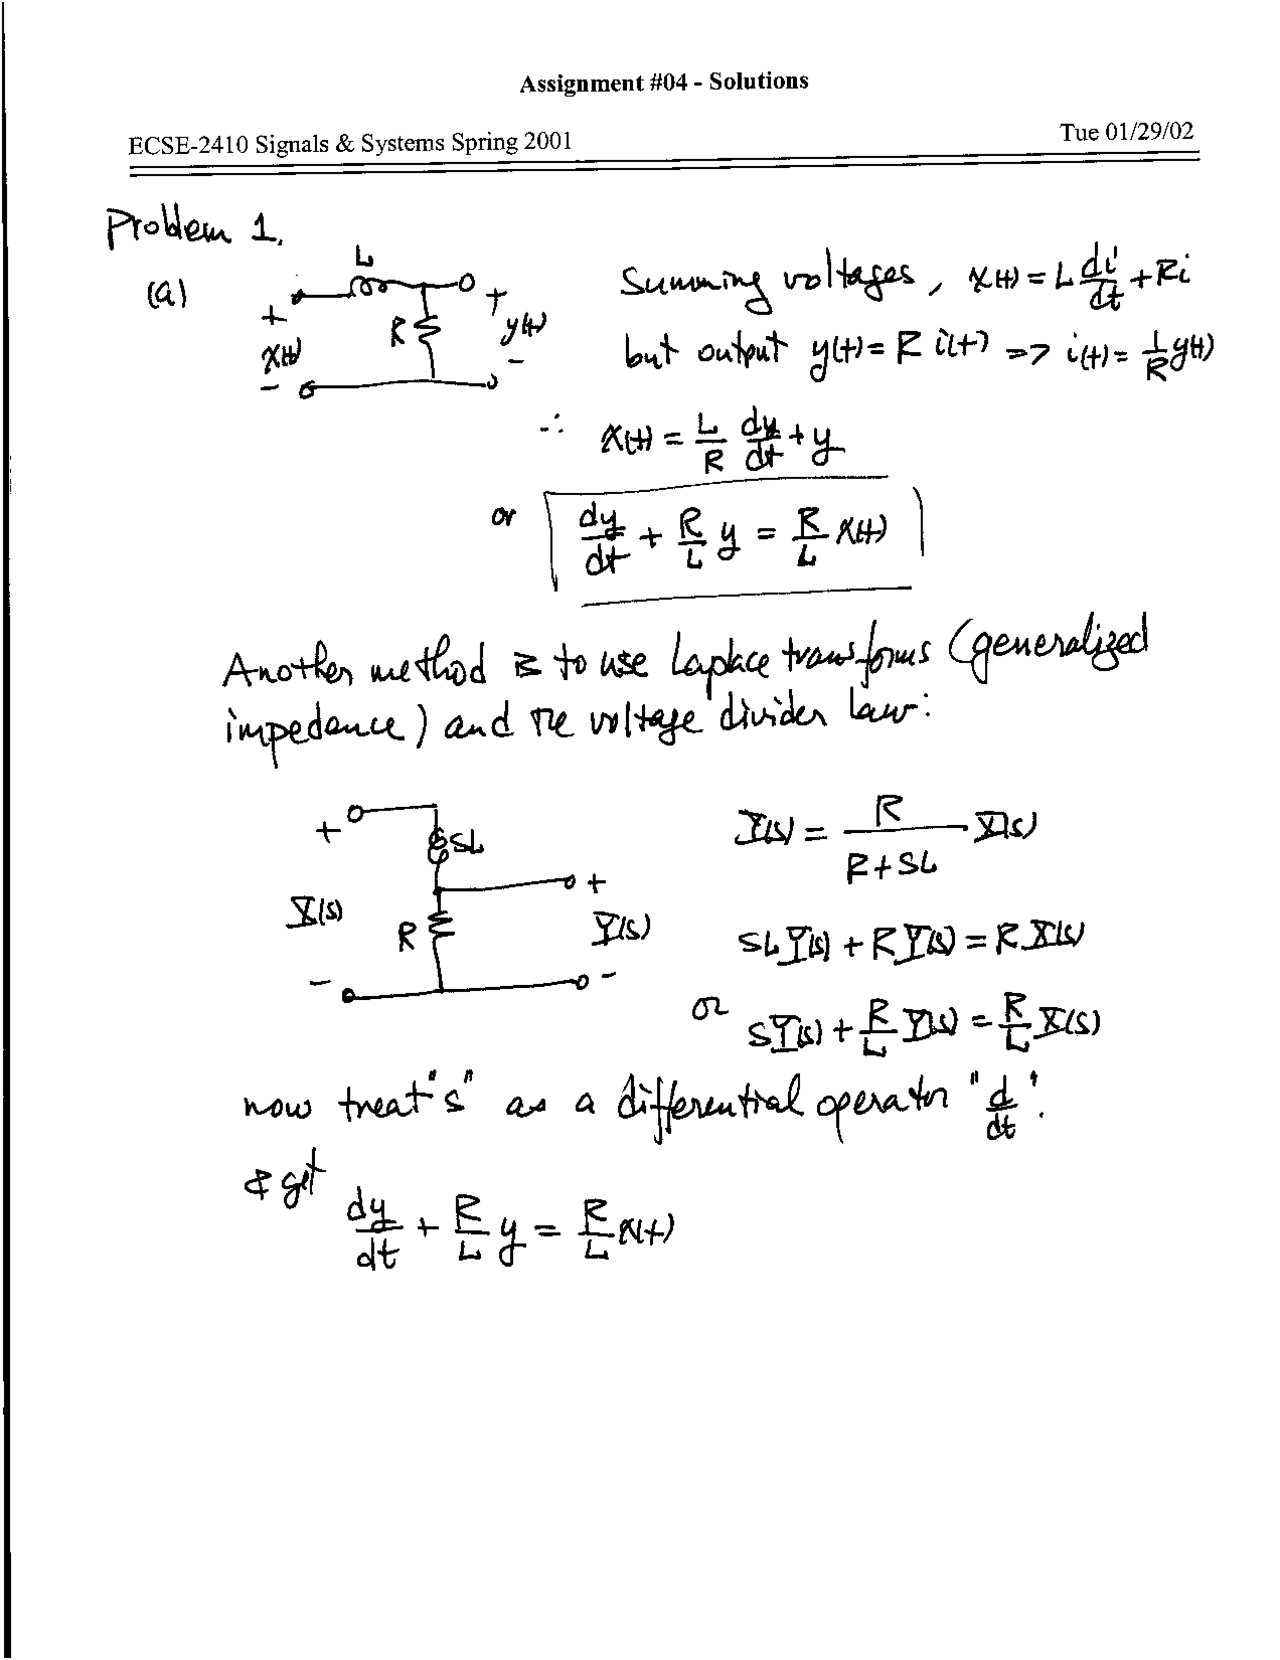 Assignment #04 - Solutions
ECSE-2410 Signals & Systems Spring 2001 Tue 01/29/02
Problem 1.
(a) L + x(t) - R + y(t) -
Summing voltages, x(t) = L di/dt + Ri
but output y(t) = R i(t) => i(t) = 1/R y(t)
∴ x(t) = L/R dy/dt + y
or dy/dt + R/L y = R/L x(t)
Another method is to use Laplace transforms (generalized
impedance) and the voltage divider law:
+ X(s) - SL R + Y(s) -
Y(s) = R/(R+SL) X(s)
SL Y(s) + R Y(s) = R X(s)
or SY(s) + R/L Y(s) = R/L X(s)
now treat "s" as a differential operator "d/dt".
& get
dy/dt + R/L y = R/L x(t)